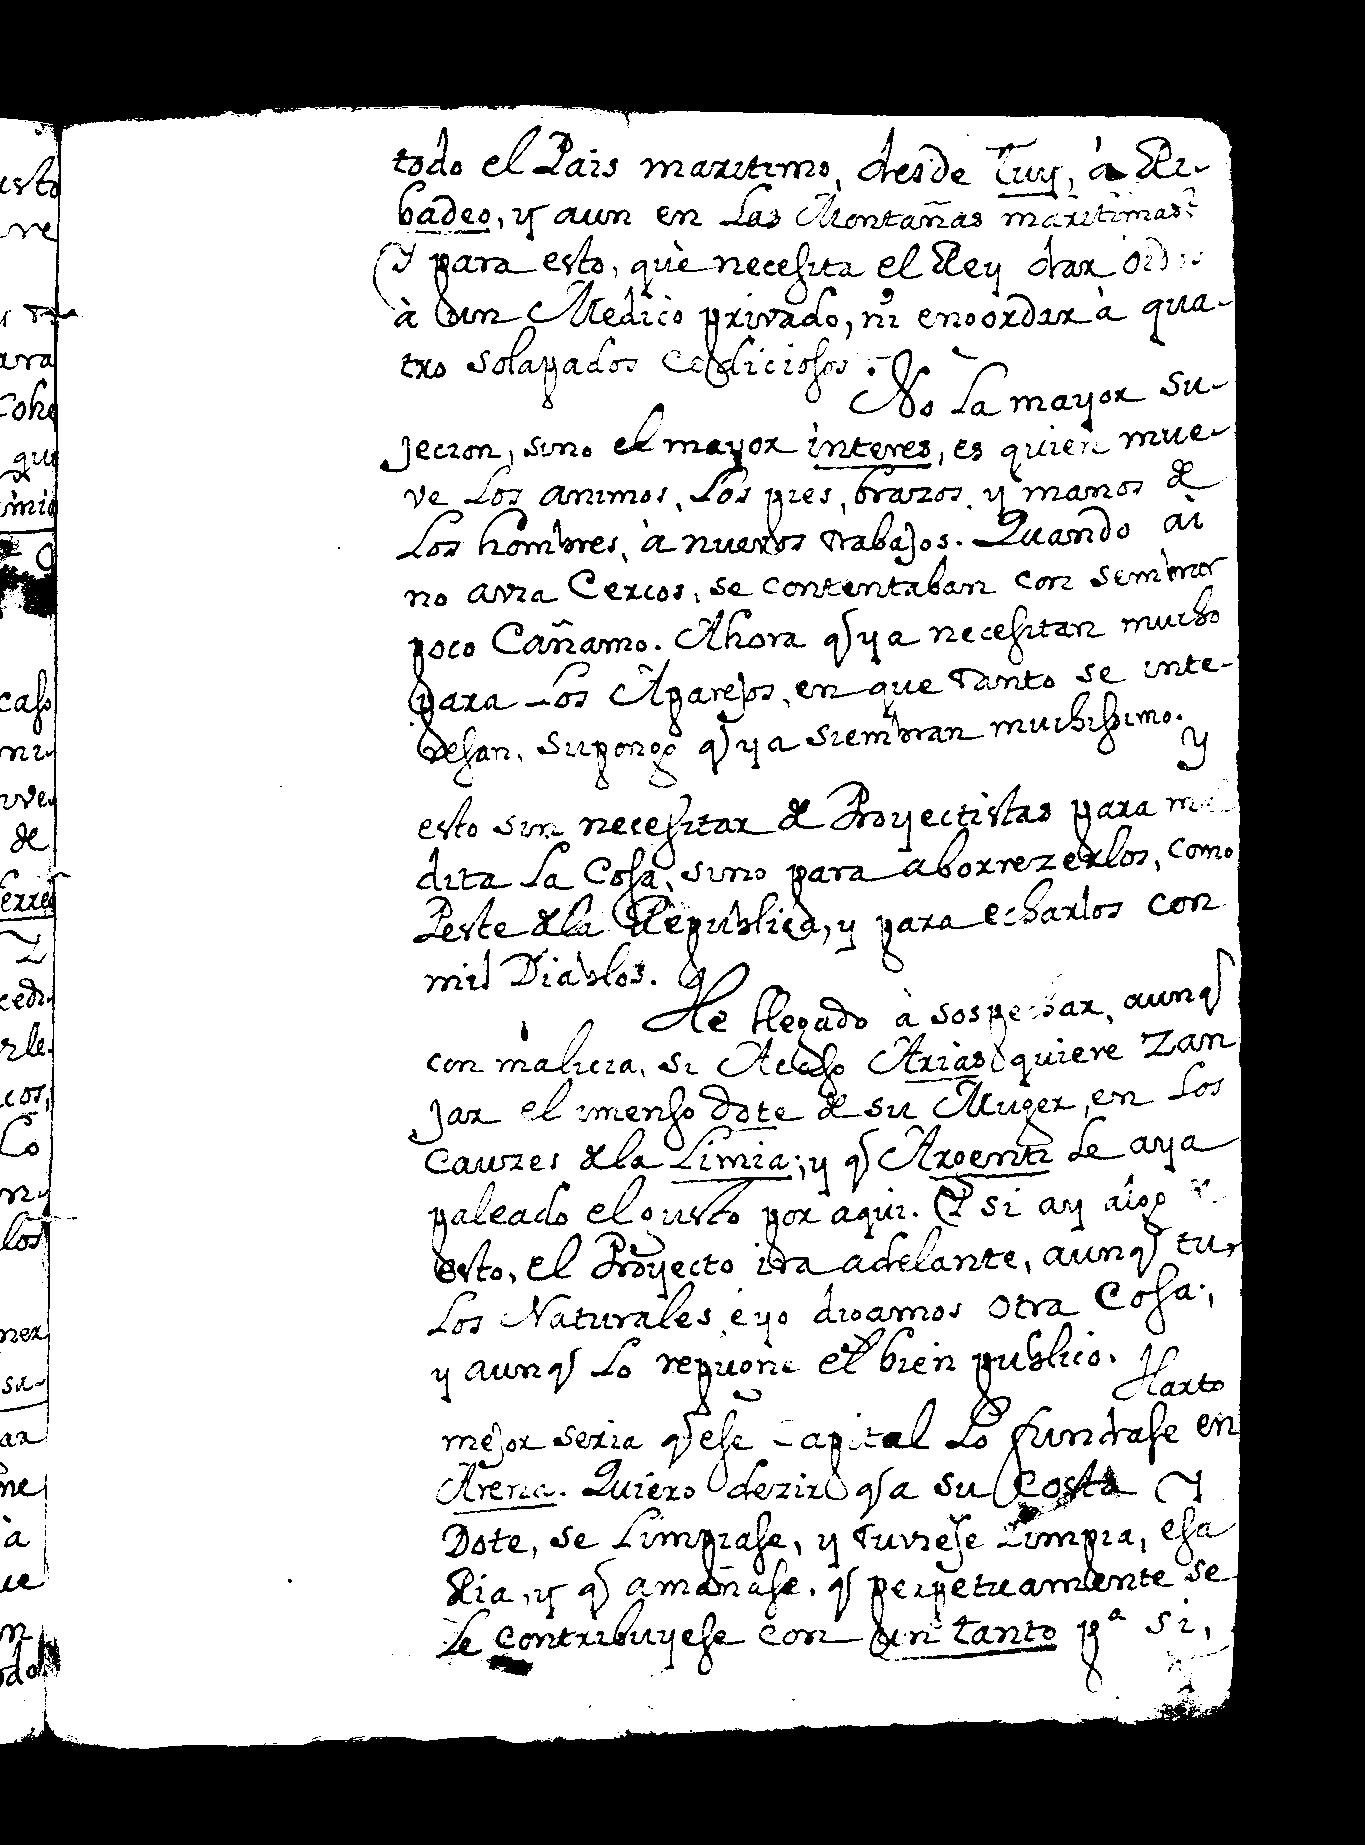 todo el Pais maritimo, desde Tuy, à Ri-
badeo, y aun en Las Montañas maritimas?
Y para esto, què necesita el Rey dar
à un Medico privado, ni engordar à qua-
tro solapados Codiciosos?
No La mayor su-
jecion, sino el mayor interes, es quien mue-
ve Los animos, Los pies, brazos, y manos de
Los hombres, à nuevos trabajos. Quando ai
no avia Cercos, se contentaban con sembrar
poco Cañamo. Ahora q ya necesitan mucho
para Los Aparejos, en que tanto se inte-
resan, supongo q ya siembran muchissimo.
y
esto sin necesitar de Proyectistas para mal
dita La Cosa, sino para aborrezerlos, como
Peste de la Republica, y para echarlos con
mil Diablos.
He llegado à sospechar, aunq
con malicia, si Arias quiere Zan
jar el imenso dote de su Muger, en Los
Cauzes de la Limia; y q Argenti Le aya
paleado el gusto por aqui. Y si ay algo
esto, el Proyecto ira adelante, aunq
Los Naturales, è yo digamos otra Cosa;
y aunq Lo repugne el bien publico.
Harto
mejor seria q ese Capital Lo fundase en
Arena. Quiero dezir q a su Costa Y
Dote, se Limpiase, y tuviese Limpia, esa
Ria, y q amañase, q perpetuamente se
Le contribuyese con un tanto pª si,